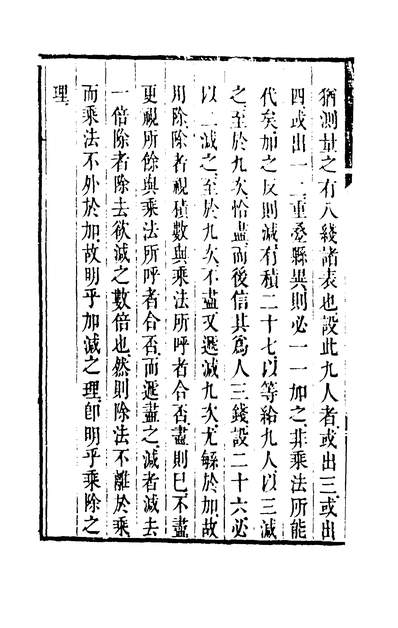 猶測量之有八綫諸表也設此九人者或出三或出
四或出一二重㬪縣異則必一一加之非乘法所能
代矣加之反則減有積二十七以等給九人以三減
之至於九次恰盡而後信其爲人三錢設二十六必
以二減之至於九次不盡又遞減九次尤緐於加故
用除除者視積數與乘法所呼者合否盡則巳不盡
更視所餘與乘法所呼者合否而遞盡之減者減去
一倍除者除去欲減之數倍也然則除法不離於乘
而乘法不外於加故明乎加減之理卽明乎乘除之
理